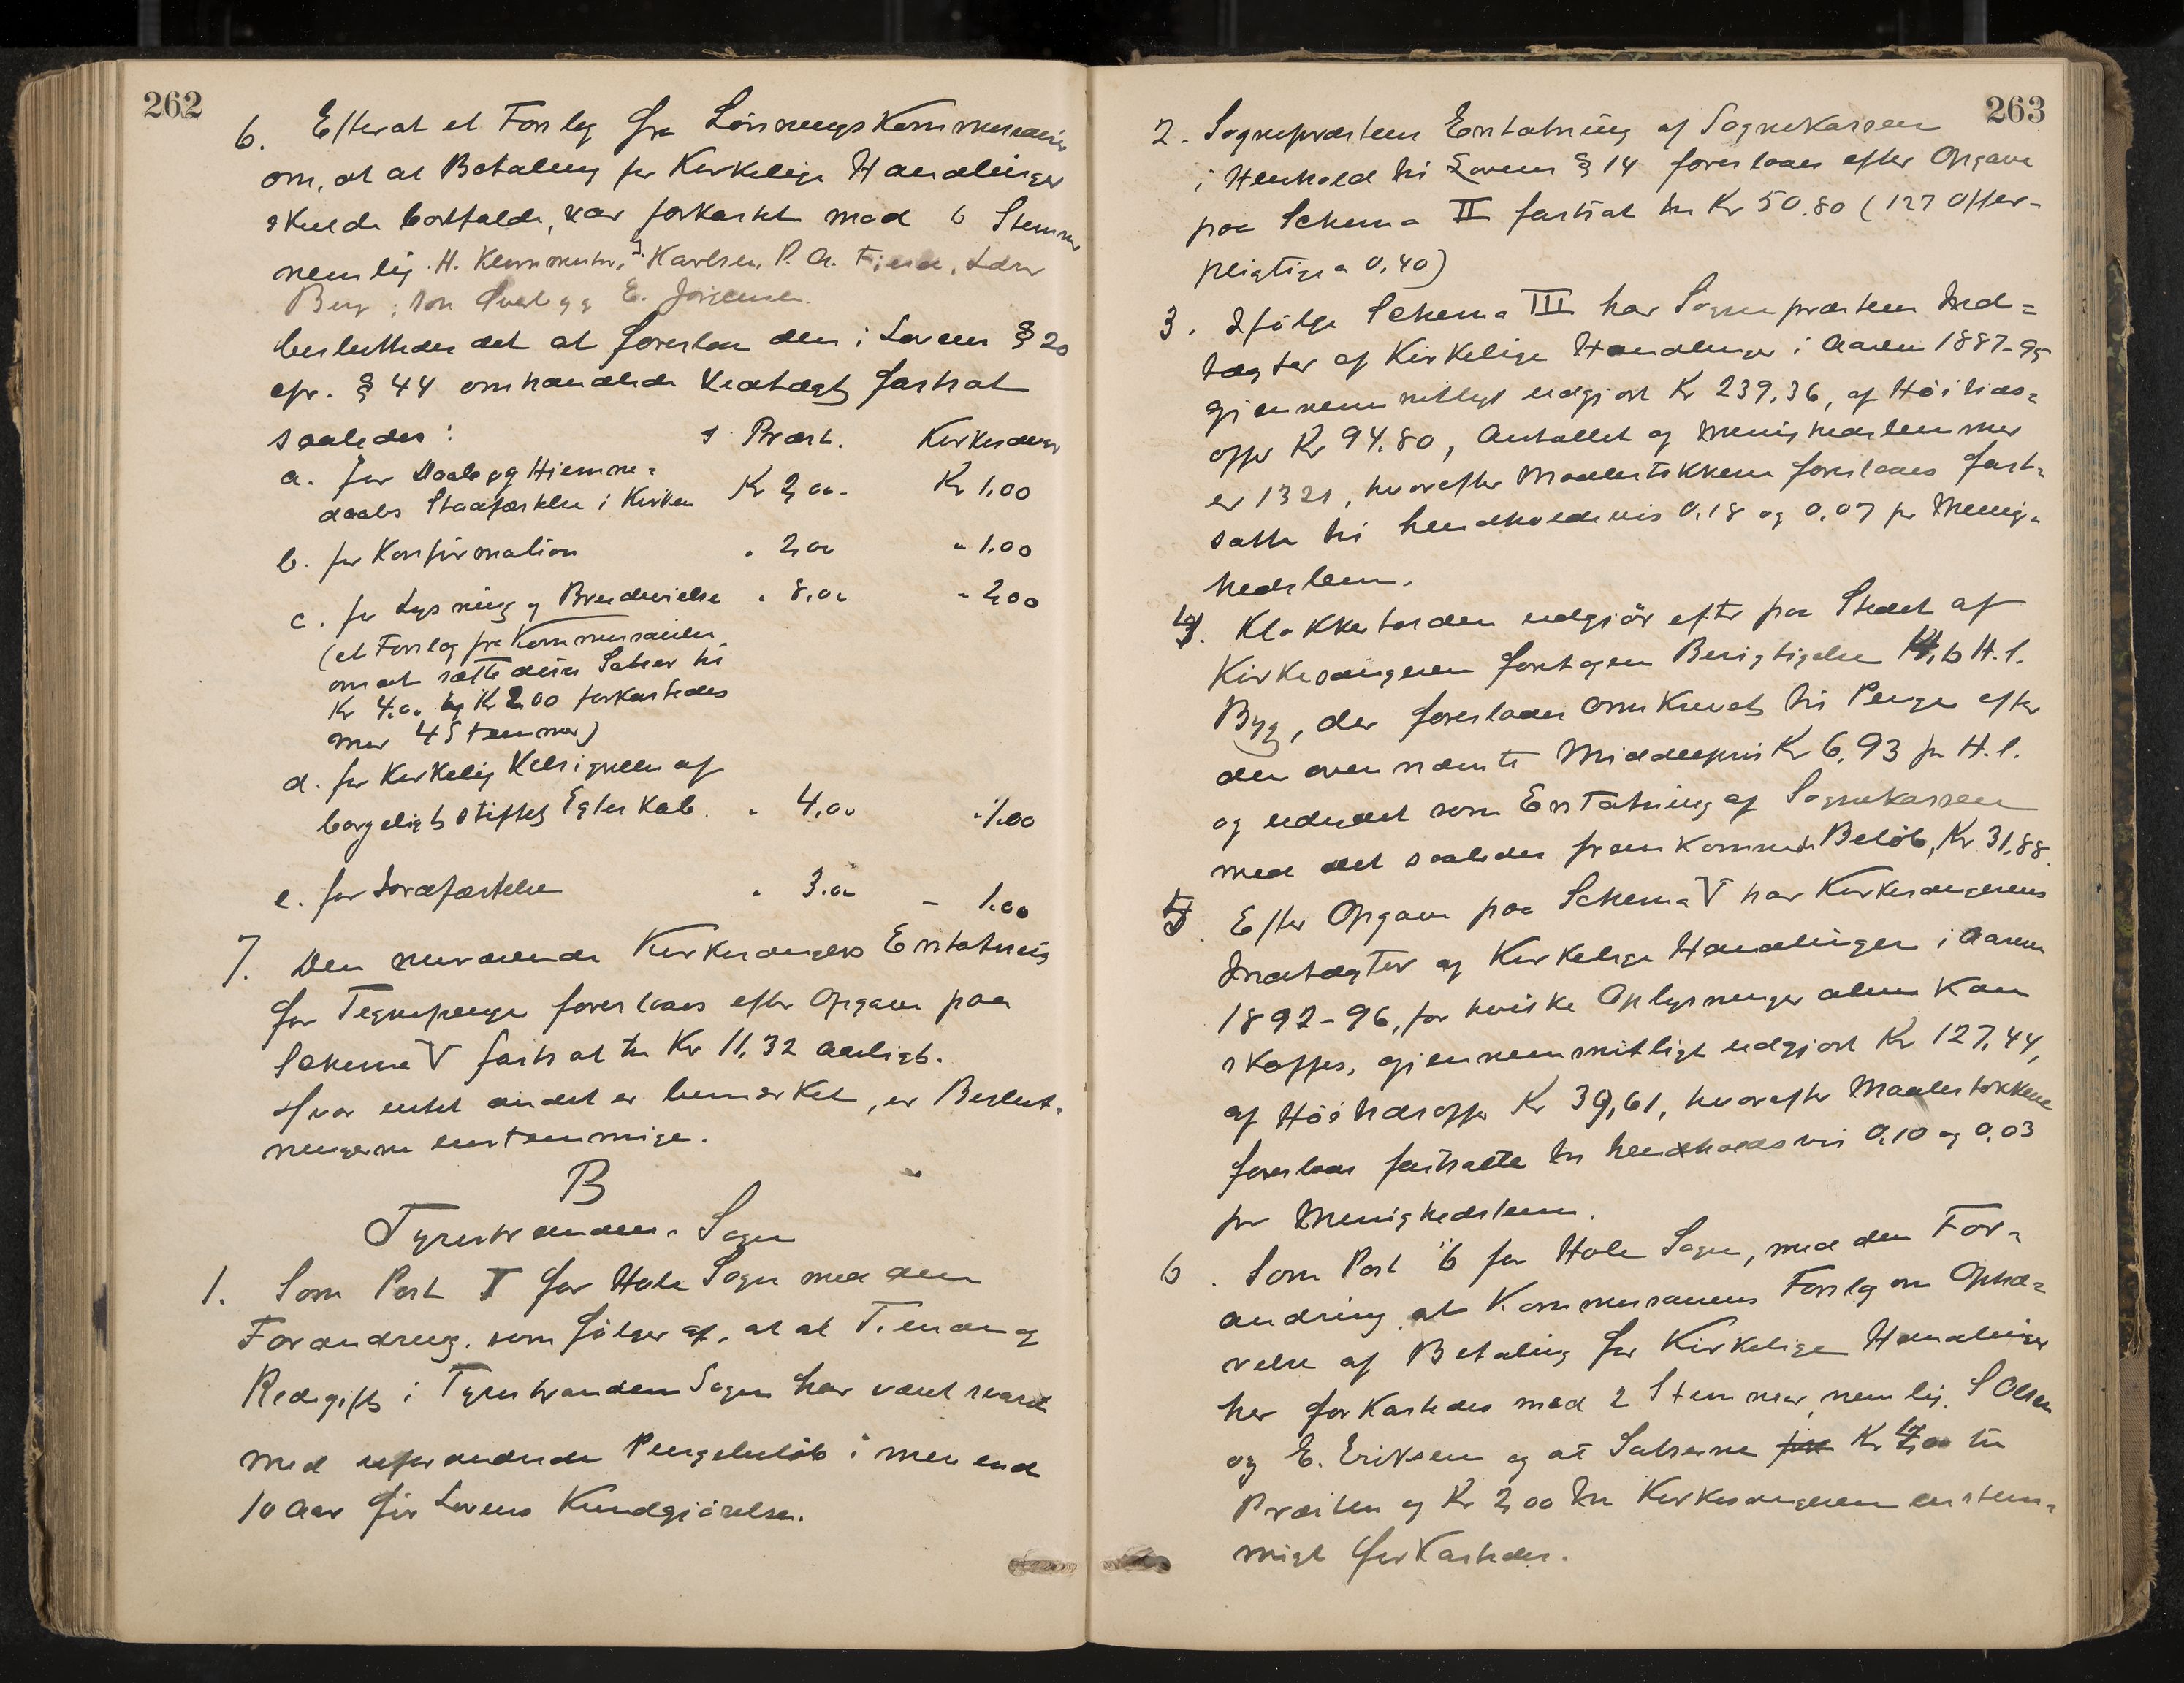 262
6. Efterat et Forslag fra Lönnings Kommissionen
om, at al Betaling for Kirkelige Handlinger
skulde bortfalde, var forkastet mod 6 Stemmer
nemlig H. Karlsen, P. A.
Berg, E. Jörgensen.
besluttedes det at foreslaa den i Lovens § 20
cfr. § 44 omhandlede Vedtægt fastsat
saaledes: Præst. Kirkesanger
a. for Daab og Hjemme=
daabs Stadfæstelse i Kirken Kr 2,00 Kr 1.00
b. for Konfirmation " 2,00 " 1.00
c. for Lysning og Brudevielse " 8,00 " 2,00
(et Forslag fra Kommissionen
om at sætte disse Satser til
Kr 4.00 og Kr 2.00 forkastedes
mod 4 Stemmer)
d. for Kirkelig Velsignelse af
borgeligt stiftet Egteskab. " 4,00 " 1.00
e. for Jordfæstelse " 3.00 " 1.00
7. Den nuværende Kirkesangers Erstatning
for Tegnepenge foreslaaes efter Opgave paa
Schema V fastsat til Kr 11,32 aarligt.
Hvor intet andet er bemærket, er Beslut=
ningerne enstemmige.
B
Tyristrandens Sogn
1. Som Post I for Hole Sogn med den
Forandring, som fölger af, at al Tiende og
Redegift i Tyristrandens Sogn har været svaret
med uforandrede Pengebelöb i mer end
10 Aar för Lovens Kundgjörelse.
263
2. Sognepræstens Erstatning af Sognekassen
i Henhold til Lovens § 14 foreslaaes efter Opgave
paa Schema II fastsat til Kr 50.80 (127 Offer-
pligtige a 0,40)
3. Ifölge Schema III har Sognepræstens Ind=
tægter af Kirkelige Handlinger i Aarene 1887-95
gjennemsnitligt udgjort Kr 239,36, af Höitids=
offer Kr 94.80, Antallet af Menighedslemmer
er 1321, hvorefter Maalestokken foreslaaes fast=
satte til henholdsvis 0.18 og 0,07 pr Menig=
hedslem.
4. Klokkertolden udgjör efter paa Stedet af
Kirkesangeren foretagen Berigtigelse 4,6 H.l.
Byg, der foreslaaes omskrevet til Penge efter
den ovennævnte Middelpris Kr 6,93 pr H.l.
og udredet som Erstatning af Sognekassen
med det saaledes fremkomne Belöb, Kr 31,88.
5. Efter Opgave paa Schema V har Kirkesangerens
Indtægter af Kirkelige Handlinger i Aarene
1892-96, for hvilke Oplysninger alene kan
skaffes, gjennemsnitligt udgjort Kr 127,44,
af Höitidsoffer Kr 39,61, hvorefter Maalestokkene
foreslaaes fastsatte til henholdsvis 0,10 og 0,03
pr Menighedslem.
6. Som Post 6 for Hole Sogn, med den For=
andring, at Kommissionens Forslag om Ophæ=
velse af Betaling for Kirkelige Handlinger
her forkastedes mod 2 Stemmer, nemlig S Olsen
og E. Eriksen og at Satserne Kr 4,00 til
Præsten og Kr 2,00 til Kirkesangeren enstem=
migt forkastedes.